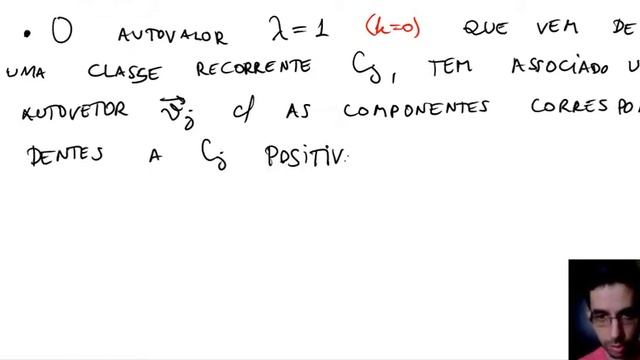 • O AUTOVALOR λ = 1 (k=0) QUE VEM DE
UMA CLASSE RECORRENTE Cj, TEM ASSOCIADO U
AUTOVETOR v⃗j c/ AS COMPONENTES CORRESPO
DENTES A Cj POSITIV